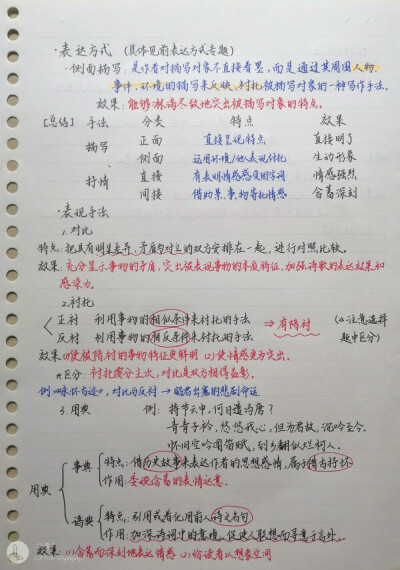 ·表达方式 (具体见前表达方式专题)
·侧面描写:是作者对描写对象不直接着墨,而是通过其周围人物、
事件、环境的描写来反映、衬托被描写对象的一种写作手法。
效果:能够淋漓尽致地突出被描写对象的特点。
[总结] 手法 分类 特点 效果
描写 正面 直接呈现特点 直接明了
侧面 运用环境/他人表现衬托 生动形象
抒情 直接 有表明情感感受的字词 情感强烈
间接 借助景、事物寄托情感 含蓄深刻
·表现手法
1.对比
特点:把具有明显差异、矛盾和对立的双方安排在一起,进行对照比较。
效果:充分显示事物的矛盾,突出被表现事物的本质特征,加强诗歌的表达效果和
感染力。
2.衬托
正衬 利用事物的相似条件来衬托的手法 ⇒ 有陪衬 (△注意选择
反衬 利用事物的相反条件来衬托的手法 题中区分)
效果:⑴使被陪衬的事物特征更鲜明 ⑵使情感更突出。
*区分:衬托需分主次,对比是双方相得益彰。
例《咏怀古迹》,对比与反衬→昭君出塞的悲剧命运
3.用典 例:持节云中,何日遣冯唐?
青青子衿,悠悠我心,但为君故,沉吟至今。
怀旧空吟闻笛赋,到乡翻似烂柯人。
用典
事典 特点:借历史故事来表达作者的思想感情,属于借古抒怀
作用:委婉含蓄的表情达意。
语典 特点:引用或者化用前人诗文名句
作用:加深诗词中的意境,促使人联想而寻意于言外。
效果:⑴含蓄而深刻地表达情感 ⑵给读者以想象空间